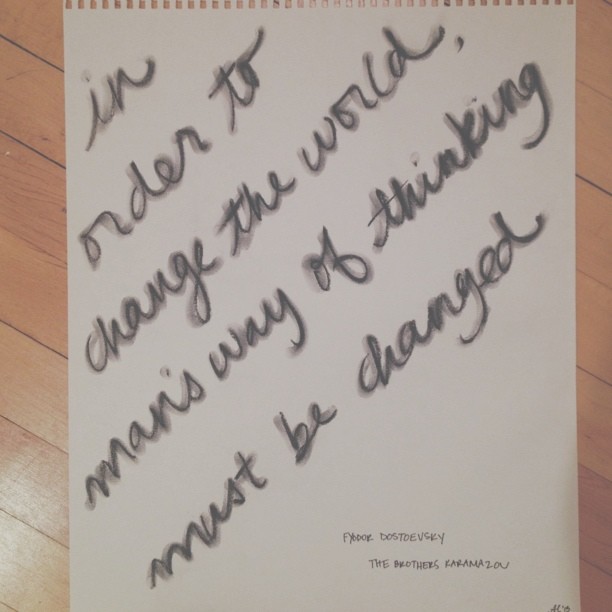 in
order to
change the world,
man's way of thinking
must be changed
FYODOR DOSTOEVSKY
THE BROTHERS KARAMAZOV